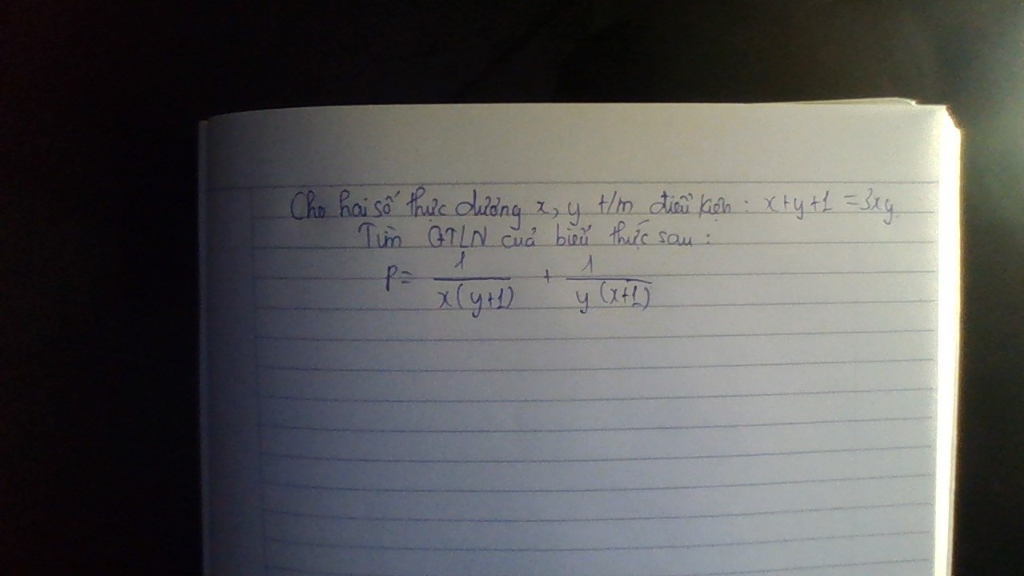 Cho hai số thực dương x, y t/m điều kiện : x+y+1 = 3xy
Tìm GTLN của biểu thức sau :
P = 1/x(y+1) + 1/y(x+1)